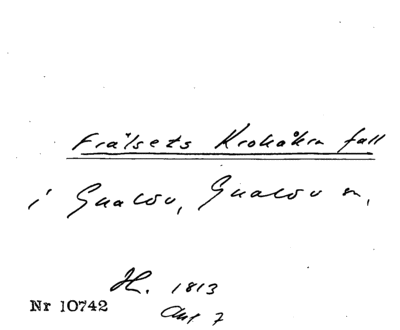 Frälsets Krokåkra fall
i Gualöv, Gualöv sn,
H. 1813
Nr 10742
Akt 7